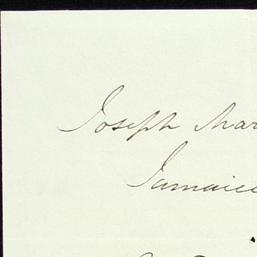 Joseph Mar
Jamaica